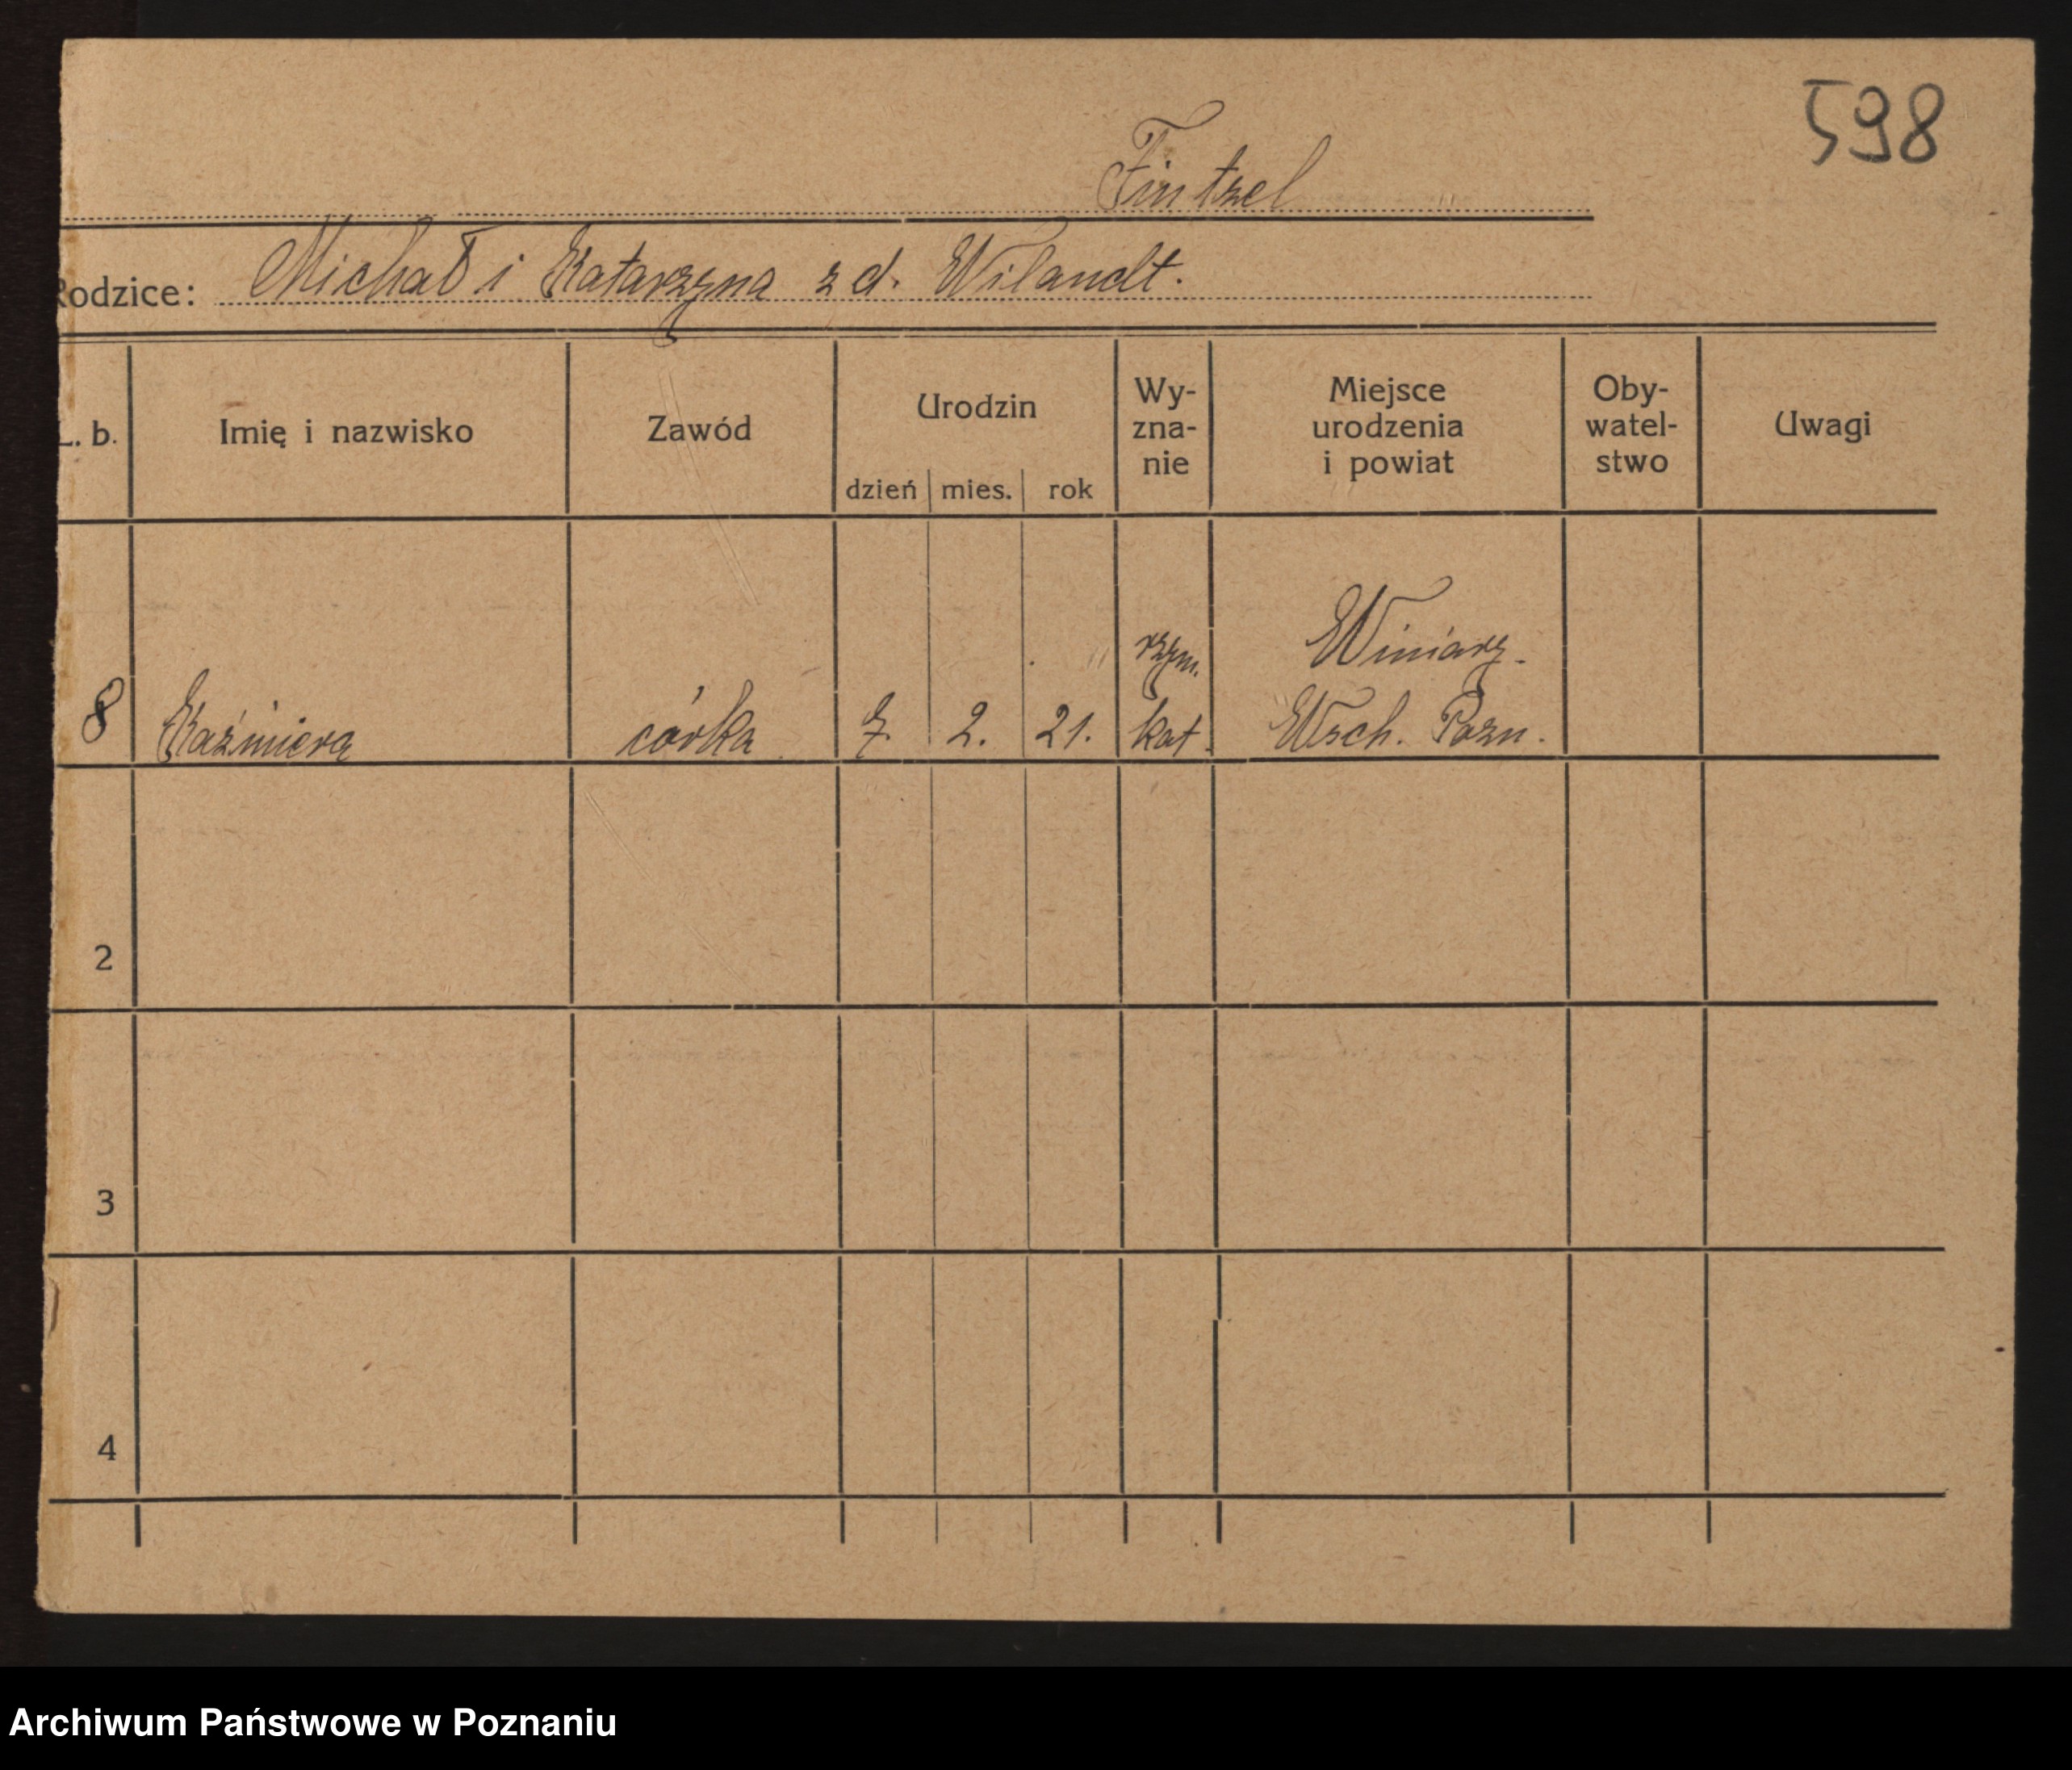 598
Fintzel
Rodzice: Michał i Katarzyna z d. Wilandt.
L. b. Imię i nazwisko Zawód Urodzin dzień mies. rok Wy-zna-nie Miejsce urodzenia i powiat Oby-watel-stwo Uwagi
8 Kaźmiera córka 7. 2. 21. rzym. kat. Winiary. Wsch. Pozn.
2
3
4
Archiwum Państwowe w Poznaniu